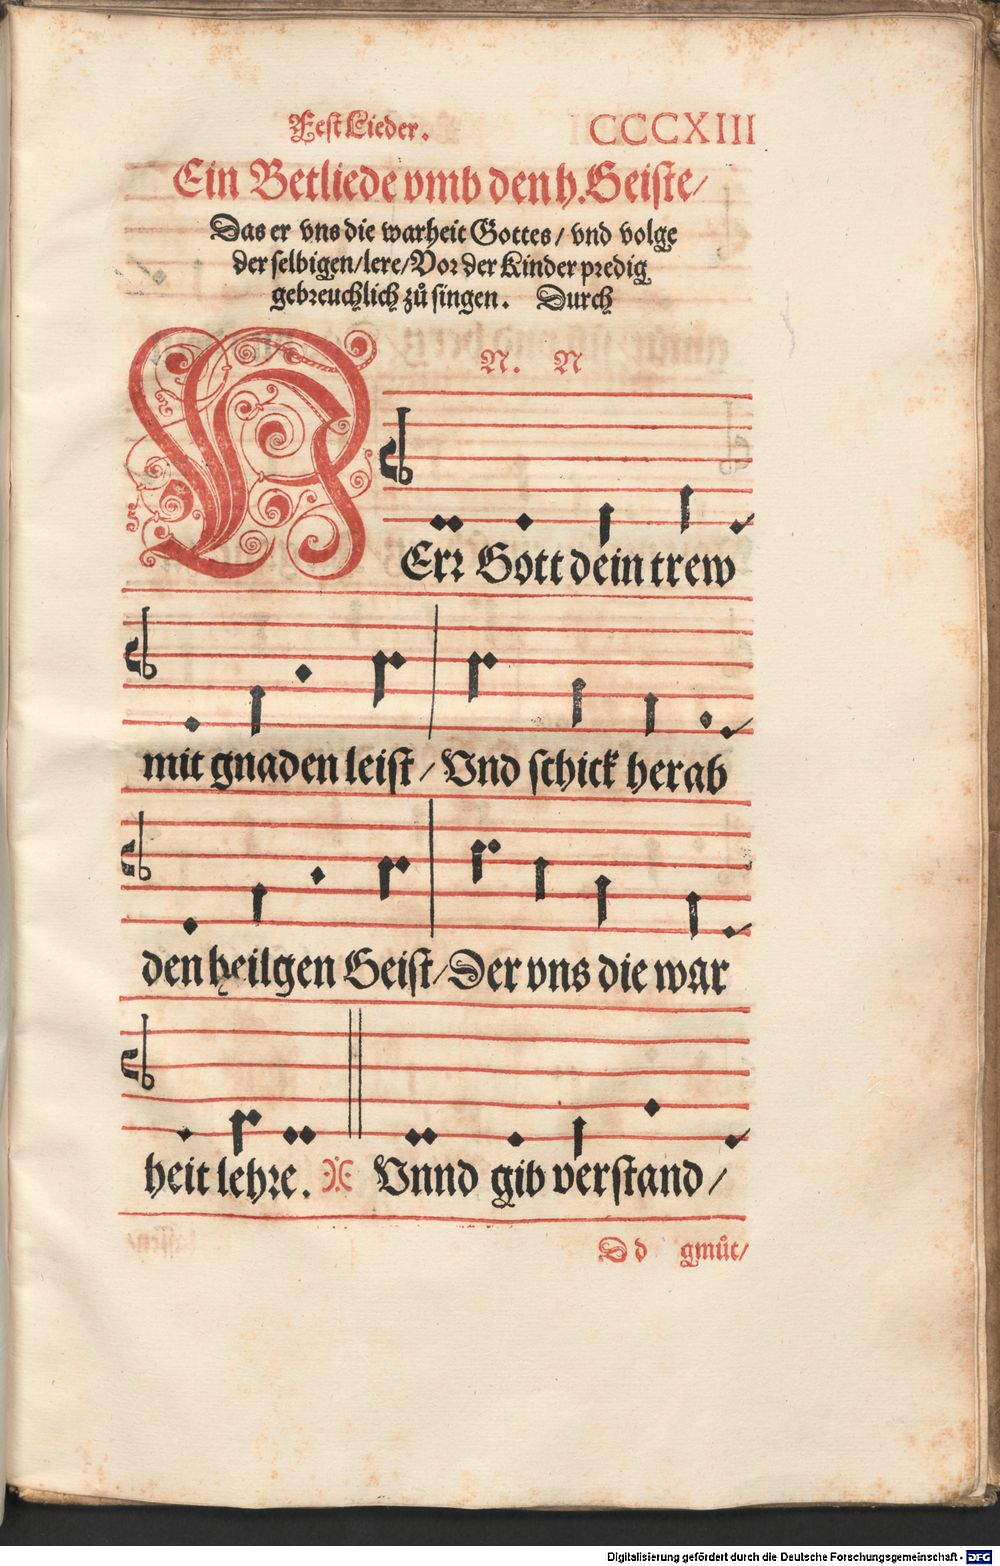 Fest Lieder. CCCXIII
Ein Betliede vmb den h. Geiste/
Das er vns die warheit Gottes/ vnd volge
der selbigen/ lere/ Vor der Kinder predig
gebreuchlich zů singen. Durch
N. N
HErr Gott dein trew
mit gnaden leist/ Vnd schick herab
den heilgen Geist/ Der vns die war
heit lehre. Vnnd gib verstand/
D d gmůt/
Digitalisierung gefördert durch die Deutsche Forschungsgemeinschaft - DFG